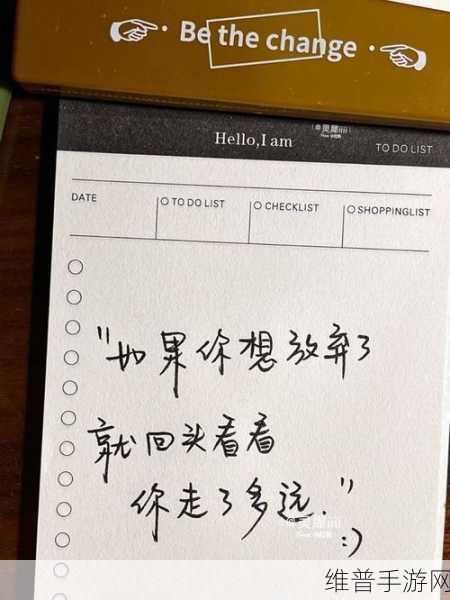 Be the change
Hello, I am
TO DO LIST
DATE
TO DO LIST
CHECKLIST
SHOPPINGLIST
"如果你想放弃了
就回头看看
你走了多远."
:)
维普手游网